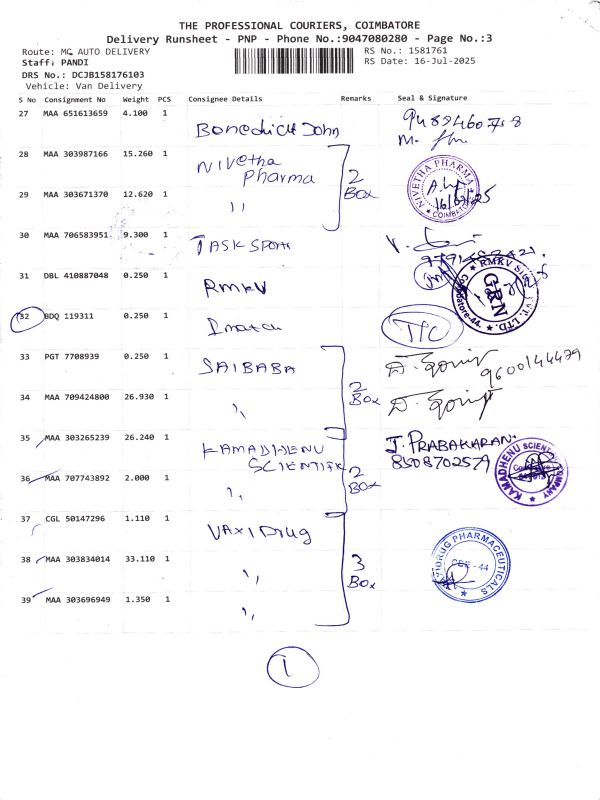 THE PROFESSIONAL COURIERS, COIMBATORE
Delivery Runsheet - PNP - Phone No.:9047080280 - Page No.:3
Route: MC AUTO DELIVERY RS No.: 1581761
Staff: PANDI RS Date: 16-Jul-2025
DRS No.: DCJB158176103
Vehicle: Van Delivery
S No Consignment No Weight PCS Consignee Details Remarks Seal & Signature
27 MAA 651613659 4.100 1 Benedict John
28 MAA 303987166 15.260 1 Nivetha Pharma 2 Box NIVETHA PHARMA COIMBATORE
29 MAA 303671370 12.620 1 ,,
30 MAA 706583951 9.300 1 TASK Sports
31 DBL 410887048 0.250 1 RMKV RMKV GRN Coimbatore-44.
32 BDQ 119311 0.250 1
33 PGT 7708939 0.250 1 SAIBABA 2 Box 9600144479
34 MAA 709424800 26.930 1 ,,
35 MAA 303265239 26.240 1 KAMADHENU SCIENTIFIC 2 Box J. PRABAKARAN. 8508702579 KAMADHENU SCIENTIFIC COMPANY
36 MAA 707743892 2.000 1 ,,
37 CGL 50147296 1.110 1 VAXI Drug 3 Box
38 MAA 303834014 33.110 1 ,, PHARMACEUTICALS CBE - 44
39 MAA 303696949 1.350 1 ,,
1